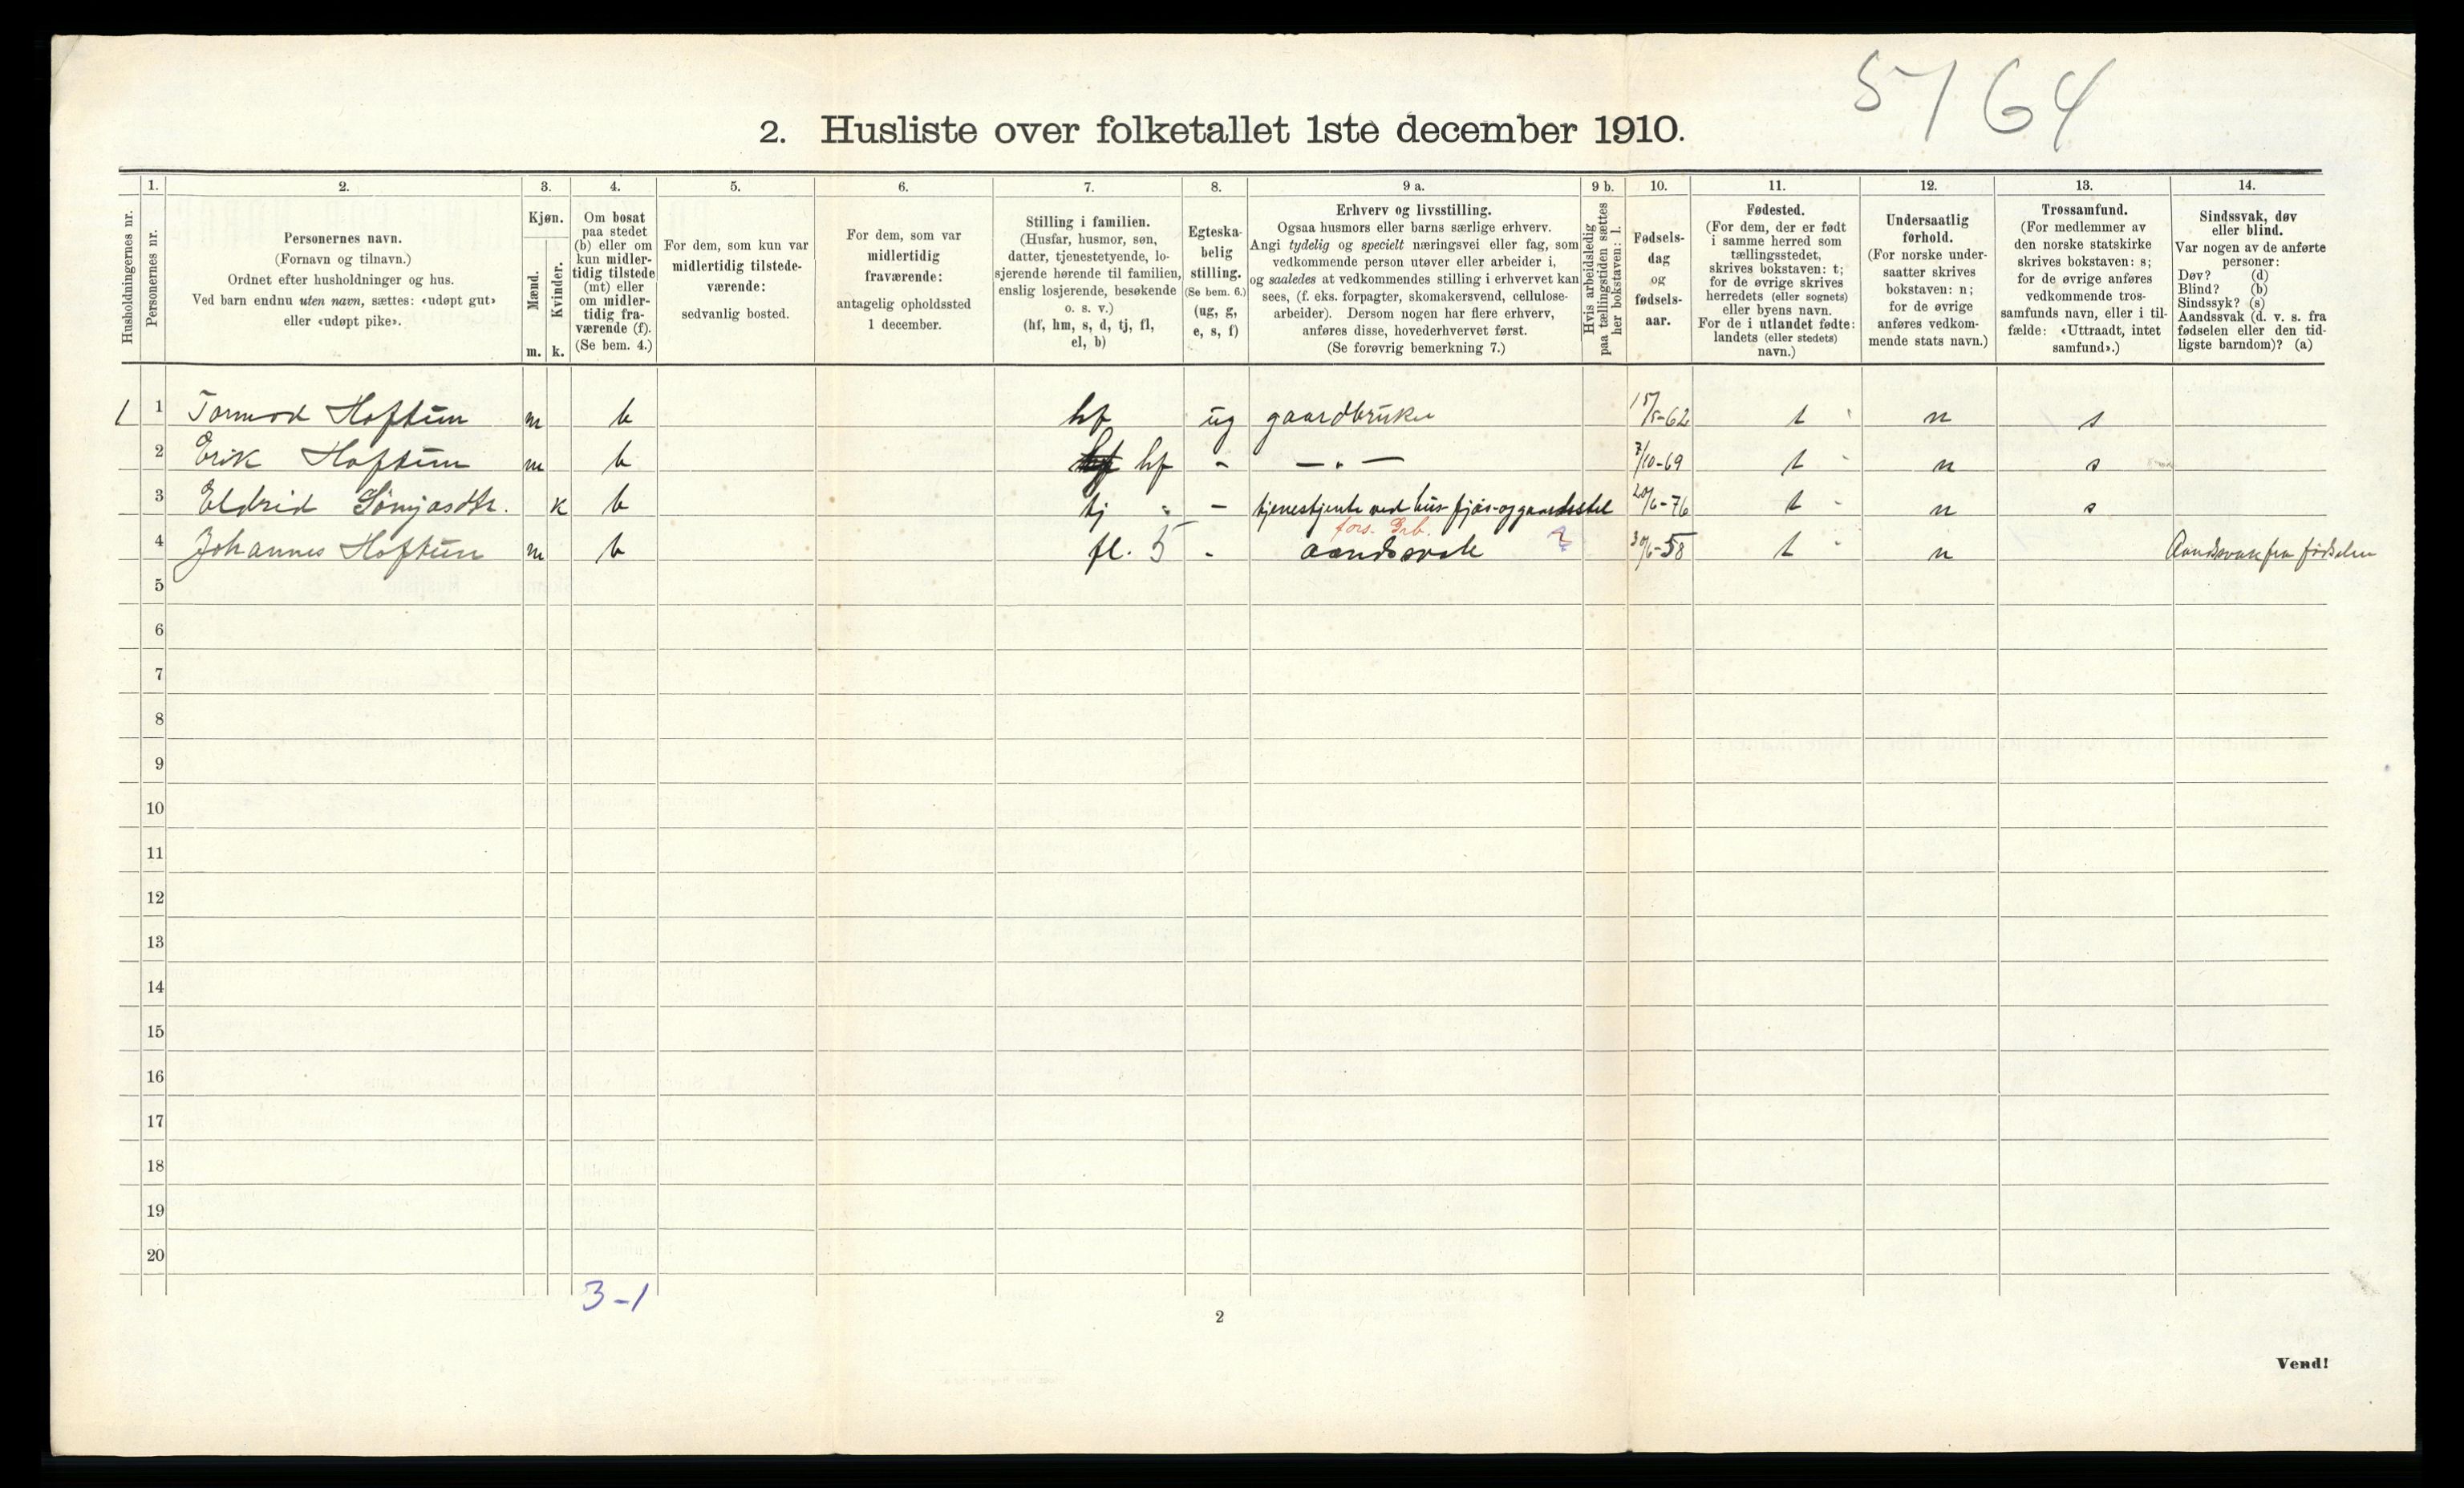 5/64
2. Husliste over folketallet 1ste december 1910.
Husholdningernes nr.
1.
Personernes nr.
2.
Personernes navn.
(Fornavn og tilnavn.)
Ordnet efter husholdninger og hus.
Ved barn endnu uten navn, sættes: «udøpt gut»
eller «udøpt pike».
3.
Kjøn.
Mænd.
Kvinder.
m. k.
4.
Om bosat
paa stedet
(b) eller om
kun midler-
tidig tilstede
(mt) eller
om midler-
tidig fra-
værende (f).
(Se bem. 4.)
5.
For dem, som kun var
midlertidig tilstede-
værende:
sedvanlig bosted.
6.
For dem, som var
midlertidig
fraværende:
antagelig opholdssted
1 december.
7.
Stilling i familien.
(Husfar, husmor, søn,
datter, tjenestetyende, lo-
sjerende hørende til familien,
enslig losjerende, besøkende
o. s. v.)
(hf, hm, s, d, tj, fl,
el, b)
8.
Egteska-
belig
stilling.
(Se bem. 6.)
(ug, g,
e, s, f)
9 a.
Erhverv og livsstilling.
Ogsaa husmors eller barns særlige erhverv.
Angi tydelig og specielt næringsvei eller fag, som
vedkommende person utøver eller arbeider i,
og saaledes at vedkommendes stilling i erhvervet kan
sees, (f. eks. forpagter, skomakersvend, cellulose-
arbeider). Dersom nogen har flere erhverv,
anføres disse, hovederhvervet først.
(Se forøvrig bemerkning 7.)
9 b.
Hvis arbeidsledig
paa tællingstiden sættes
her bokstaven: l.
10.
Fødsels-
dag
og
fødsels-
aar.
11.
Fødested.
(For dem, der er født
i samme herred som
tællingsstedet,
skrives bokstaven: t;
for de øvrige skrives
herredets (eller sognets)
eller byens navn.
For de i utlandet fødte:
landets (eller stedets)
navn.)
12.
Undersaatlig
forhold.
(For norske under-
saatter skrives
bokstaven: n;
for de øvrige
anføres vedkom-
mende stats navn.)
13.
Trossamfund.
(For medlemmer av
den norske statskirke
skrives bokstaven: s;
for de øvrige anføres
vedkommende tros-
samfunds navn, eller i til-
fælde: «Uttraadt, intet
samfund».)
14.
Sindssvak, døv
eller blind.
Var nogen av de anførte
personer:
Døv? (d)
Blind? (b)
Sindssyk? (s)
Aandssvak (d. v. s. fra
fødselen eller den tid-
ligste barndom)? (a)
1 1 Tormod Hoftun m b hf ug gaardbruker 15/5-62 t n s
2 Erik Hoftun m b hf - — " — 7/10-69 t n s
3 Eldrid k b tj - tjenestjente ved hus- fjøs- og gaardsstel 20/6-76 t n s
fors.
4 Johannes Hoftun m b fl. 5 - aandssvak 30/6-58 t n Aandssvak fra fødselen
5
6
7
8
9
10
11
12
13
14
15
16
17
18
19
20
3-1
2
Vend!